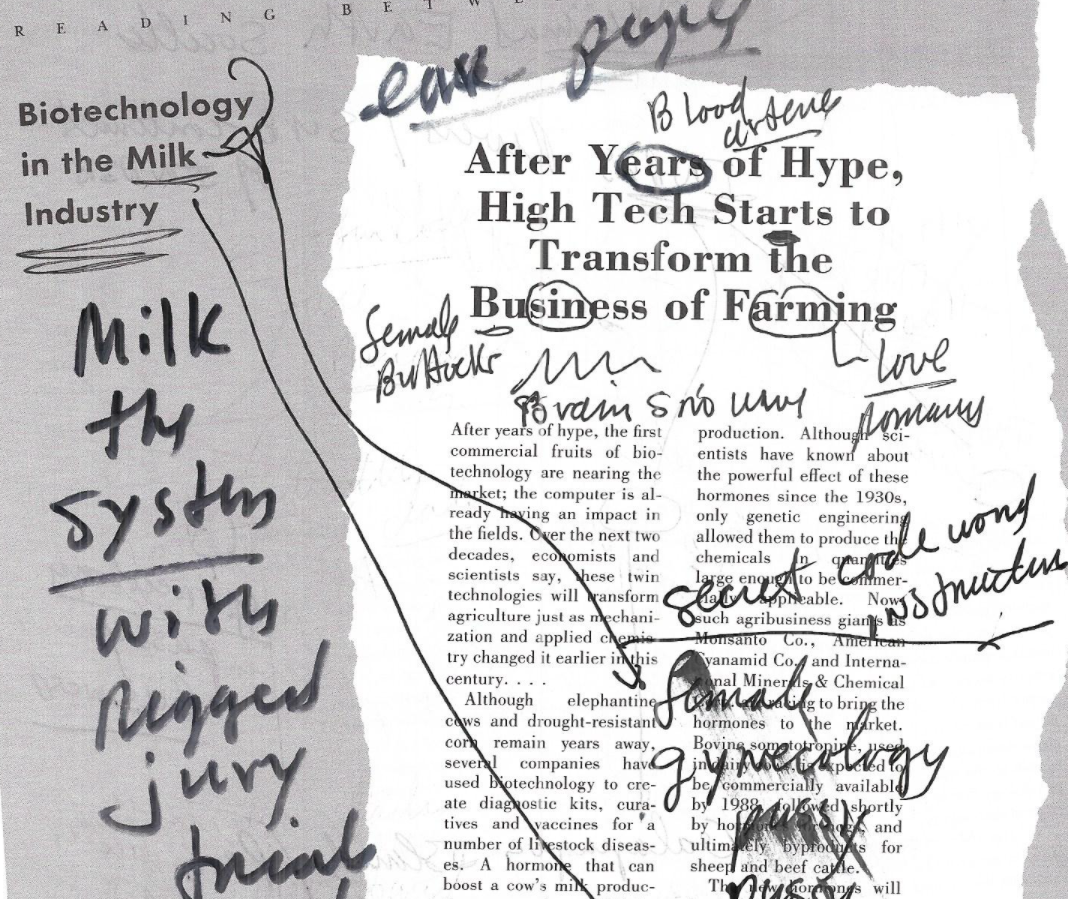 READING BETWE
ear pages
Biotechnology
in the Milk
Industry
Milk
the
system
with
rigged
jury
trials
Blood
After Years of Hype,
High Tech Starts to
Transform the
Business of Farming
female
Buttocks
Brain
Love
After years of hype, the first
commercial fruits of bio-
technology are nearing the
market; the computer is al-
ready having an impact in
the fields. Over the next two
decades, economists and
scientists say, these twin
technologies will transform
agriculture just as mechani-
zation and applied chemis-
try changed it earlier in this
century. . . .
Although elephantine
cows and drought-resistant
corn remain years away,
several companies have
used biotechnology to cre-
ate diagnostic kits, cura-
tives and vaccines for a
number of livestock diseas-
es. A hormone that can
boost a cow's milk produc-
production. Although sci-
entists have known about
the powerful effect of these
hormones since the 1930s,
only genetic engineering
allowed them to produce the
chemicals in quantities
large enough to be commer-
cially applicable. Now
such agribusiness giants as
Monsanto Co., American
Cyanamid Co., and Interna-
tional Minerals & Chemical
racing to bring the
hormones to the market.
Bovine somototropine, used
in dairy cows, is expected to
be commercially available
by 1988, followed shortly
by hormones and
ultimately byproducts for
sheep and beef cattle.
The new hormones will
secret code word
instructions
female
gynecology
pussy
pussy